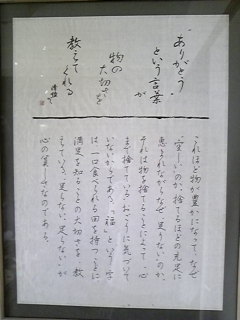 "ありがとう
という言葉が
物の
大切さを
教えてくれる
これほど物が豊かになって、なぜ
"空しい"のか。捨てるほどの充足に
恵まれながらなぜ、足りないのか。
それは物を捨てることによって、心
まで捨てている、おごりに気づいて
いないからである。「福」という字
は一口食べられる田を持つことに
満足を知ることの大切さを、教
えている。足らない、足らないが
心の貧しさなのである。